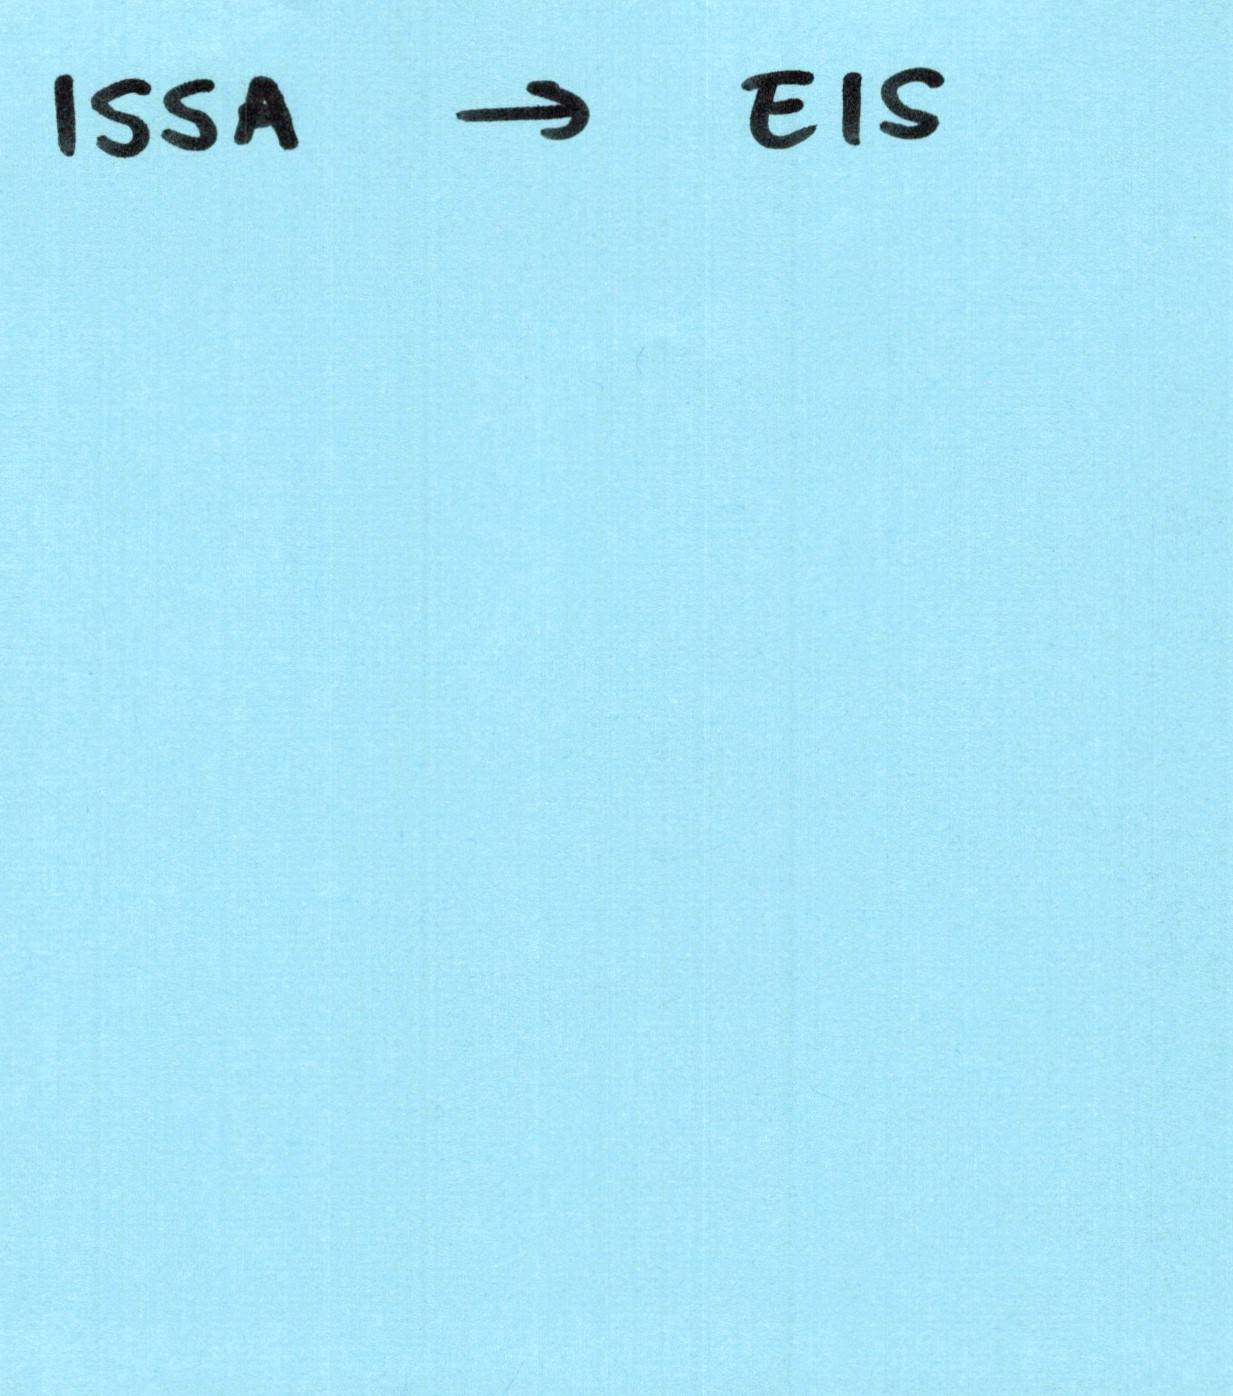 ISSA → EIS